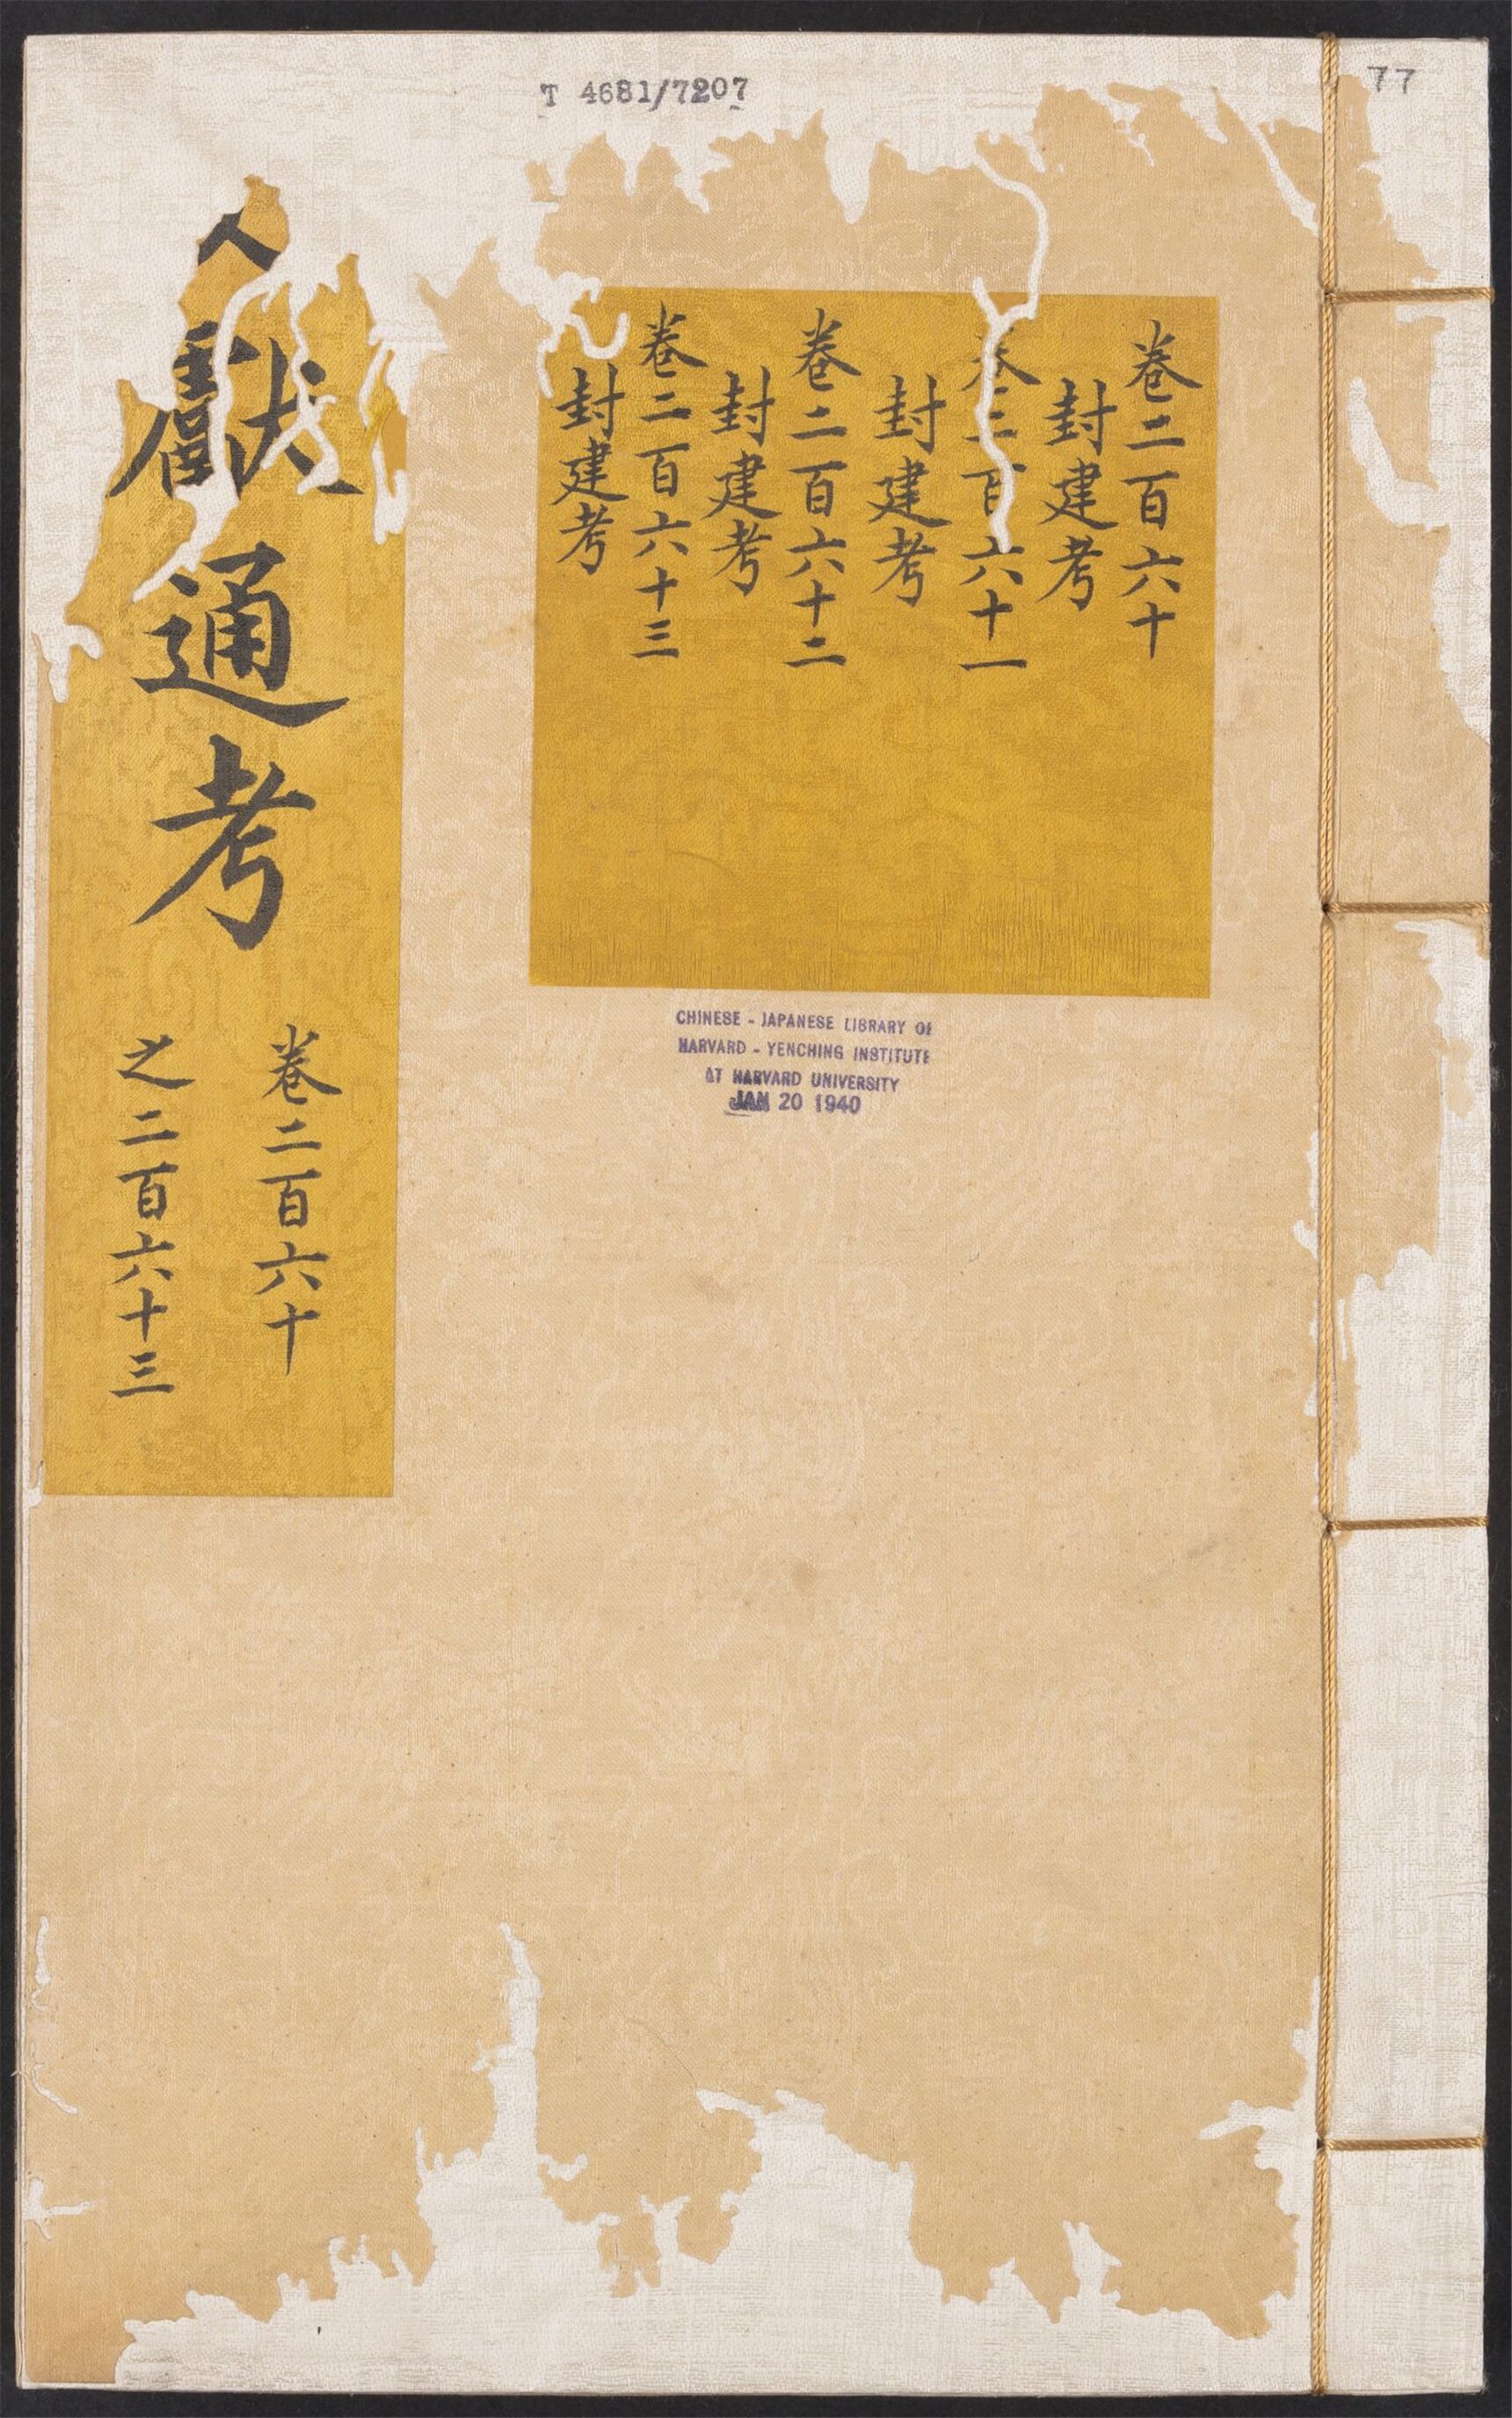 T 4681/7207
77
卷二百六十
封建考
卷二百六十一
封建考
卷二百六十二
封建考
卷二百六十三
封建考
獻通考
卷二百六十
之二百六十三
CHINESE - JAPANESE LIBRARY OF
HARVARD - YENCHING INSTITUTE
AT HARVARD UNIVERSITY
JAN 20 1940